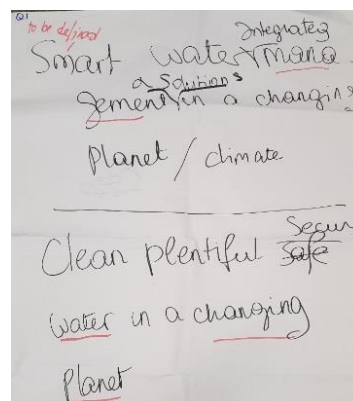 Q1
to be defined
Integrated
Smart water mana
& Solutions
gement in a changing
Planet / climate
Clean plentiful Safe
Secur
water in a changing
Planet